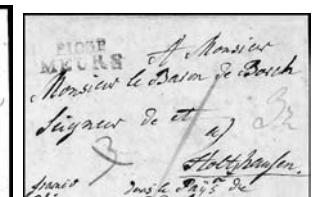 P103P
MEURS
A Monsieur
Monsieur le Baron de Bosch
Seigneur de et
a)
Holtzhausen.
franco dans le Pays de